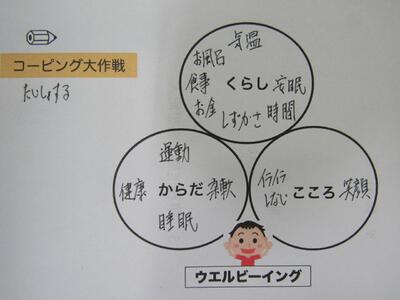 コーピング大作戦
たいしょする
気温
お風呂
食事
くらし
安眠
お金
しずかさ
時間
運動
健康
からだ
柔軟
睡眠
イライラ
しない
こころ
笑顔
ウエルビーイング